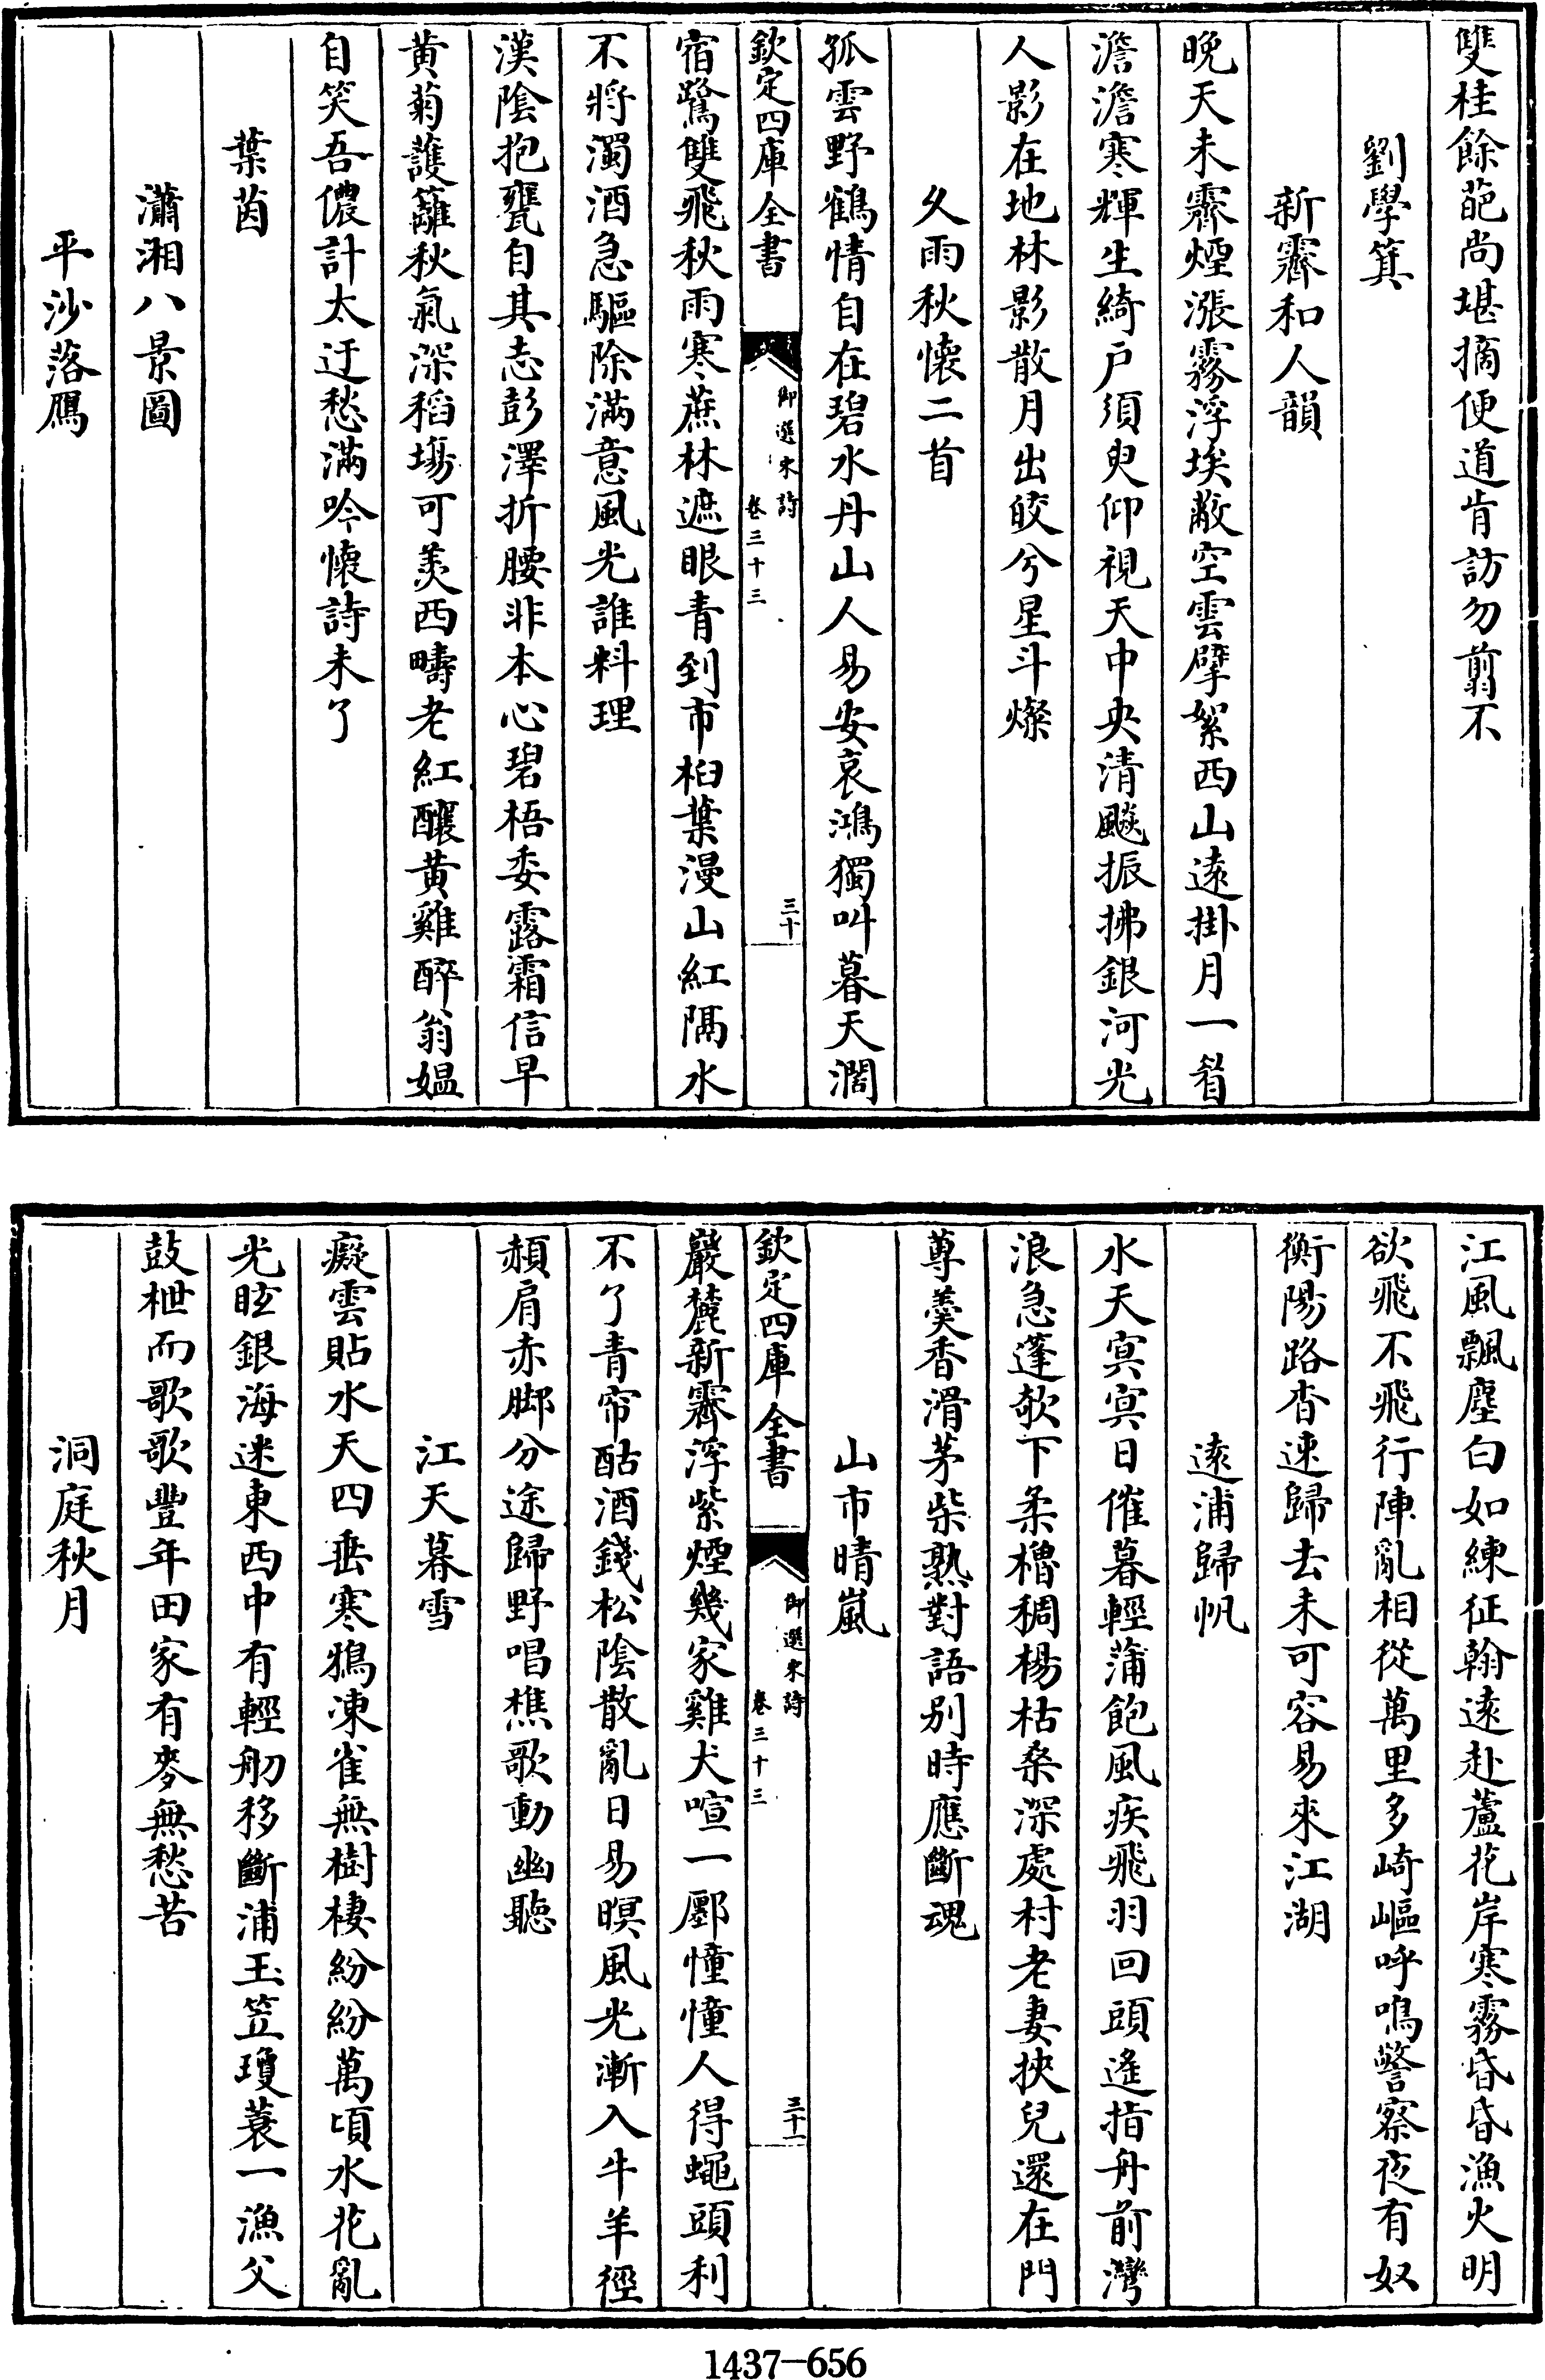 雙桂餘葩尚堪摘便道肯訪勿翦不
劉學箕
新霽和人韻
晚天未霽煙漲霧浮埃蔽空雲擘絮西山遠掛月一眉
澹澹寒輝生綺戶須臾仰視天中央清飈振拂銀河光
人影在地林影散月出皎兮星斗燦
久雨秋懷二首
孤雲野鶴情自在碧水丹山人易安哀鴻獨叫暮天濶
欽定四庫全書
御選宋詩
卷三十三
三十
宿鷺雙飛秋雨寒蔗林遮眼青到市桕葉漫山紅隔水
不將濁酒急驅除滿意風光誰料理
漢陰抱甕自其志彭澤折腰非本心碧梧委露霜信早
黄菊護籬秋氣深稻塲可羨西疇老紅釀黄雞醉翁媼
自笑吾儂計太迂愁滿吟懷詩未了
葉茵
瀟湘八景圖
平沙落鴈
江風飄塵白如練征翰遠赴蘆花岸寒霧昏昏漁火明
欲飛不飛行陣亂相從萬里多崎嶇呼鳴警察夜有奴
衡陽路杳速歸去未可容易來江湖
遠浦歸帆
水天冥冥日催暮輕蒲飽風疾飛羽回頭遙指舟前灣
浪急蓬欹下柔櫓稠楊枯桑深處村老妻挾兒還在門
蓴羹香滑茅柴熟對語别時應斷魂
山市晴嵐
欽定四庫全書
御選宋詩
卷三十三
三十一
巖麓新霽浮紫煙幾家雞犬喧一鄽憧憧人得蠅頭利
不了青帘酤酒錢松陰散亂日易暝風光漸入牛羊徑
頳肩赤脚分途歸野唱樵歌動幽聽
江天暮雪
癡雲貼水天四垂寒鴉凍雀無樹棲紛紛萬頃水花亂
光眩銀海迷東西中有輕舠移斷浦玉笠瓊蓑一漁父
鼓枻而歌歌豐年田家有麥無愁苦
洞庭秋月
1437-656